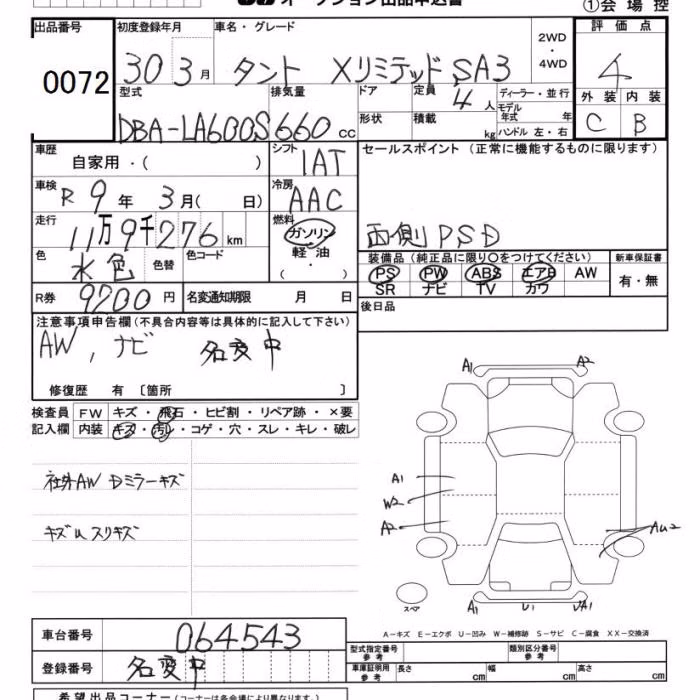 オークション出品申込書
①会場控
出品番号 0072
初度登録年月 30 3月
車名・グレード タント XリミテッドSA3
2WD・4WD
評価点 4
型式 DBA-LA600S
排気量 660 cc
ドア 形状
定員 4人
積載 kg
ディーラー・並行
モデル年式 年
ハンドル 左・右
外装 C
内装 B
車歴 自家用・( )
シフト IAT
セールスポイント (正常に機能するものに限ります)
両側PSD
車検 R9年 3月( 日)
冷房 AAC
走行 11万9千276km
燃料 ガソリン・軽油・( ・ )
色 水色
色替
色コード
装備品 (純正品に限り○をつけてください)
PS PW ABS エアB AW
SR ナビ TV カワ
新車保証書 有・無
R券 9700円
名変通知期限 月 日
後日品
注意事項申告欄(不具合内容等は具体的に記入して下さい)
AW, ナビ 名変中
修復歴 有 〔箇所 〕
検査員記入欄
FW キズ・飛石・ヒビ割・リペア跡・×要
内装 キズ・汚レ・コゲ・穴・スレ・キレ・破レ
社外AW Dミラーキズ
キズUスリキズ
A1
A2
A1
W2
A2
AU2
スペア
A1
U1
A-キズ E-エクボ U-凹み W-補修跡 S-サビ C-腐食 XX-交換済
車台番号 064543
登録番号 名変中
型式指定番号 参考
類別区分番号 参考
車庫証明用 参考
長さ cm
幅 cm
高さ cm
希望出品コーナー(コーナーは各会場により異なります。)